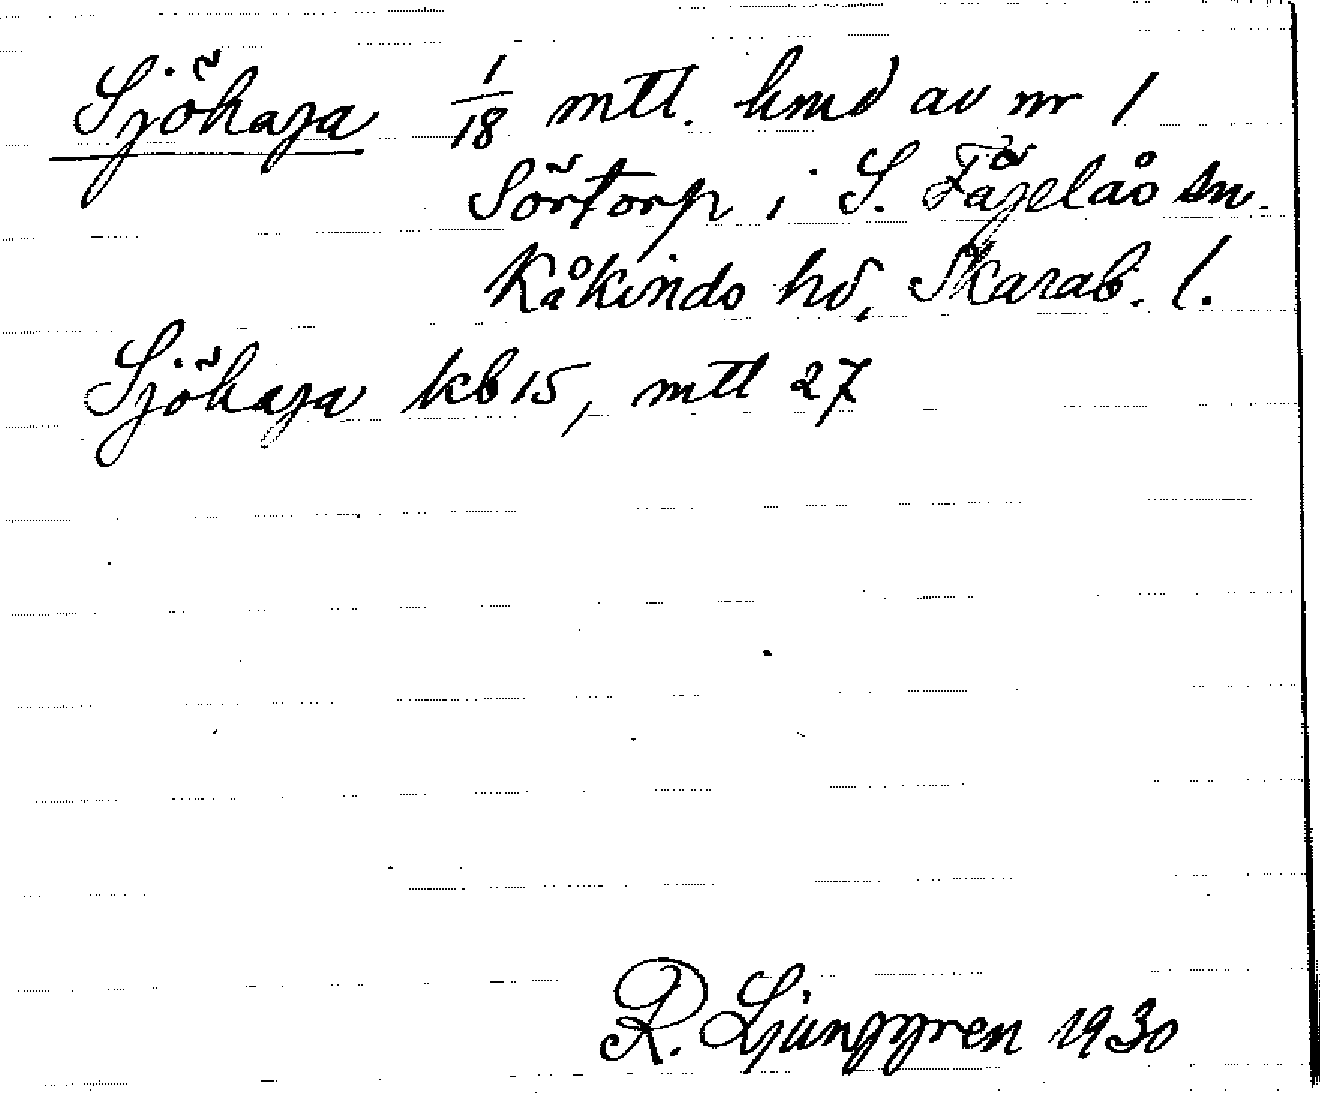 Sjöhaga 1/18 mtl. hmd av nr 1
Sörtorp i S. Fågelås sn.
Kåkinds hd, Skarab. l.
Sjöhaga kb 15, mtl 27
R. Ljunggren 1930